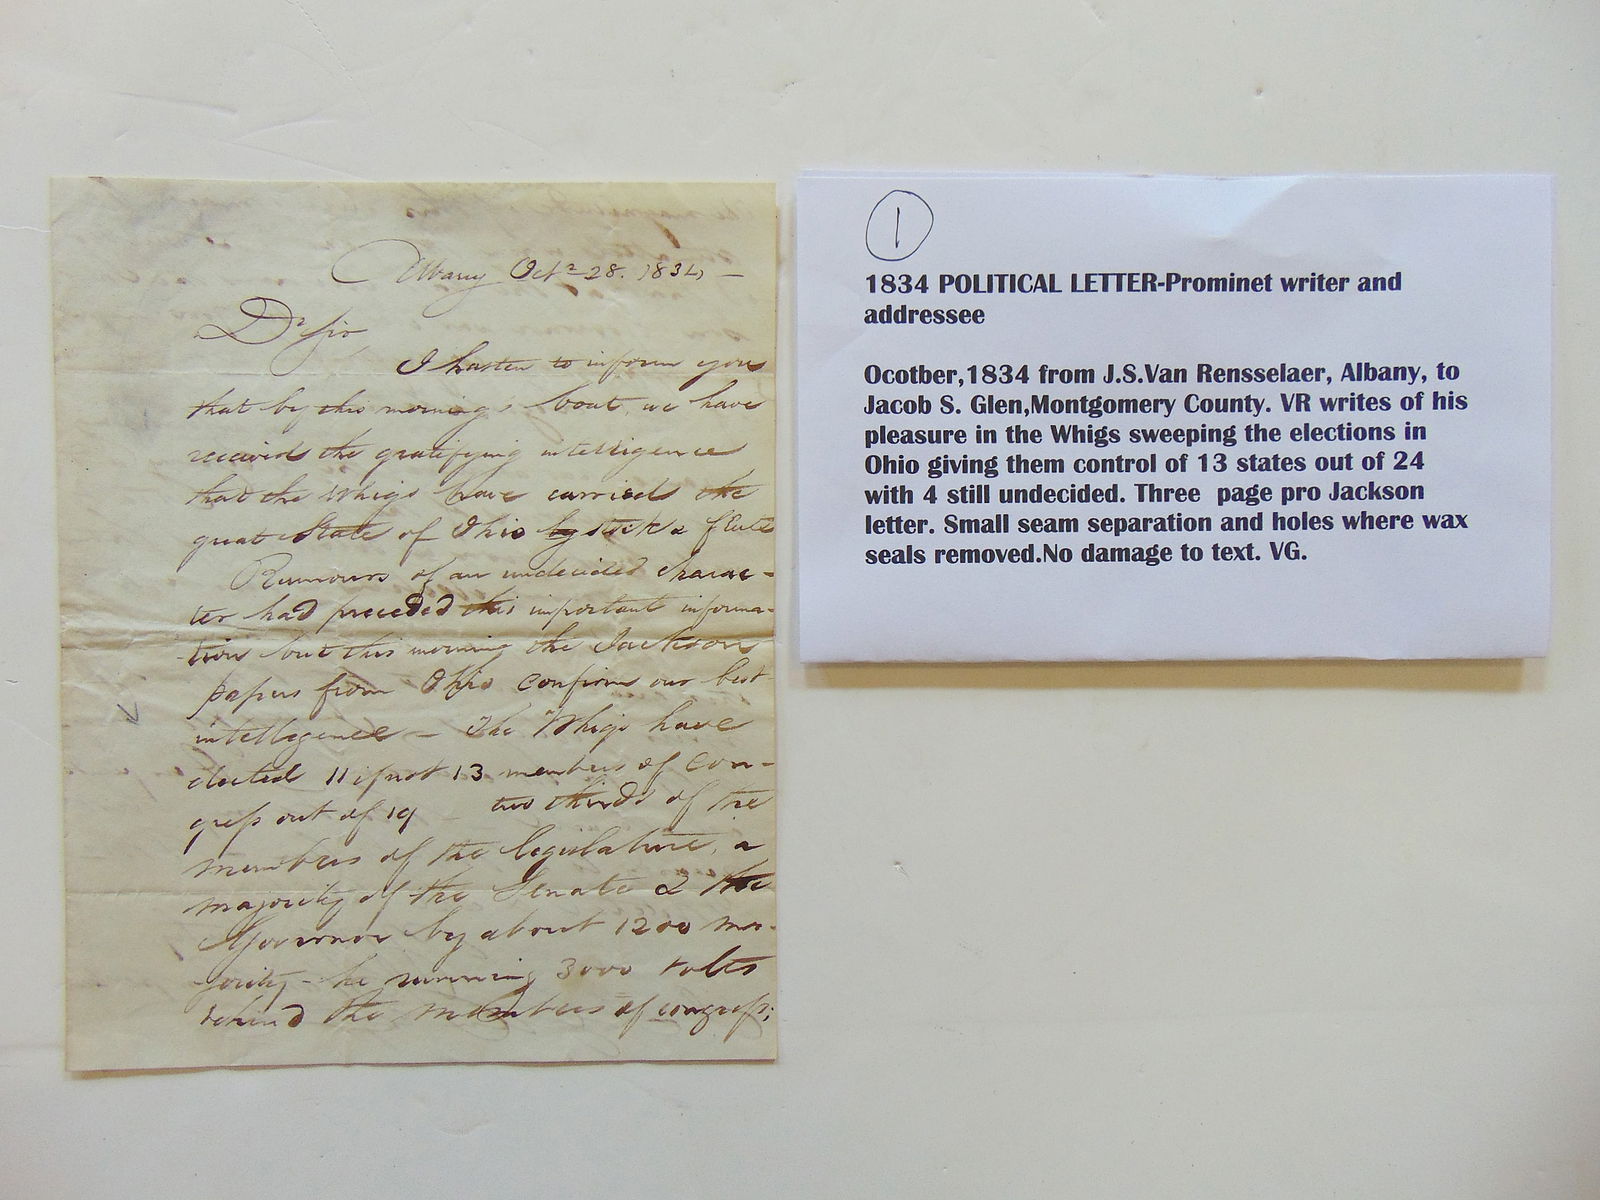 Albany Octr 28. 1834 —
Dr Sir
I hasten to inform you
that by this morning's boat, we have
received the gratifying intelligence
that the Whigs have carried the
great State of Ohio
Rumours of an undecided charac-
ter had preceded this important informa-
tion but this morning the Jackson
papers from Ohio confirm our best
intelligence — The Whigs have
elected 11 if not 13 members of Con-
gress out of 19 two thirds of the
members of the legislature, a
majority of the Senate & the
Governor by about 1200 ma-
jority - he running 3000 votes
behind the members of congress;
1
1834 POLITICAL LETTER-Prominet writer and
addressee
Ocotber,1834 from J.S.Van Rensselaer, Albany, to
Jacob S. Glen,Montgomery County. VR writes of his
pleasure in the Whigs sweeping the elections in
Ohio giving them control of 13 states out of 24
with 4 still undecided. Three page pro Jackson
letter. Small seam separation and holes where wax
seals removed.No damage to text. VG.